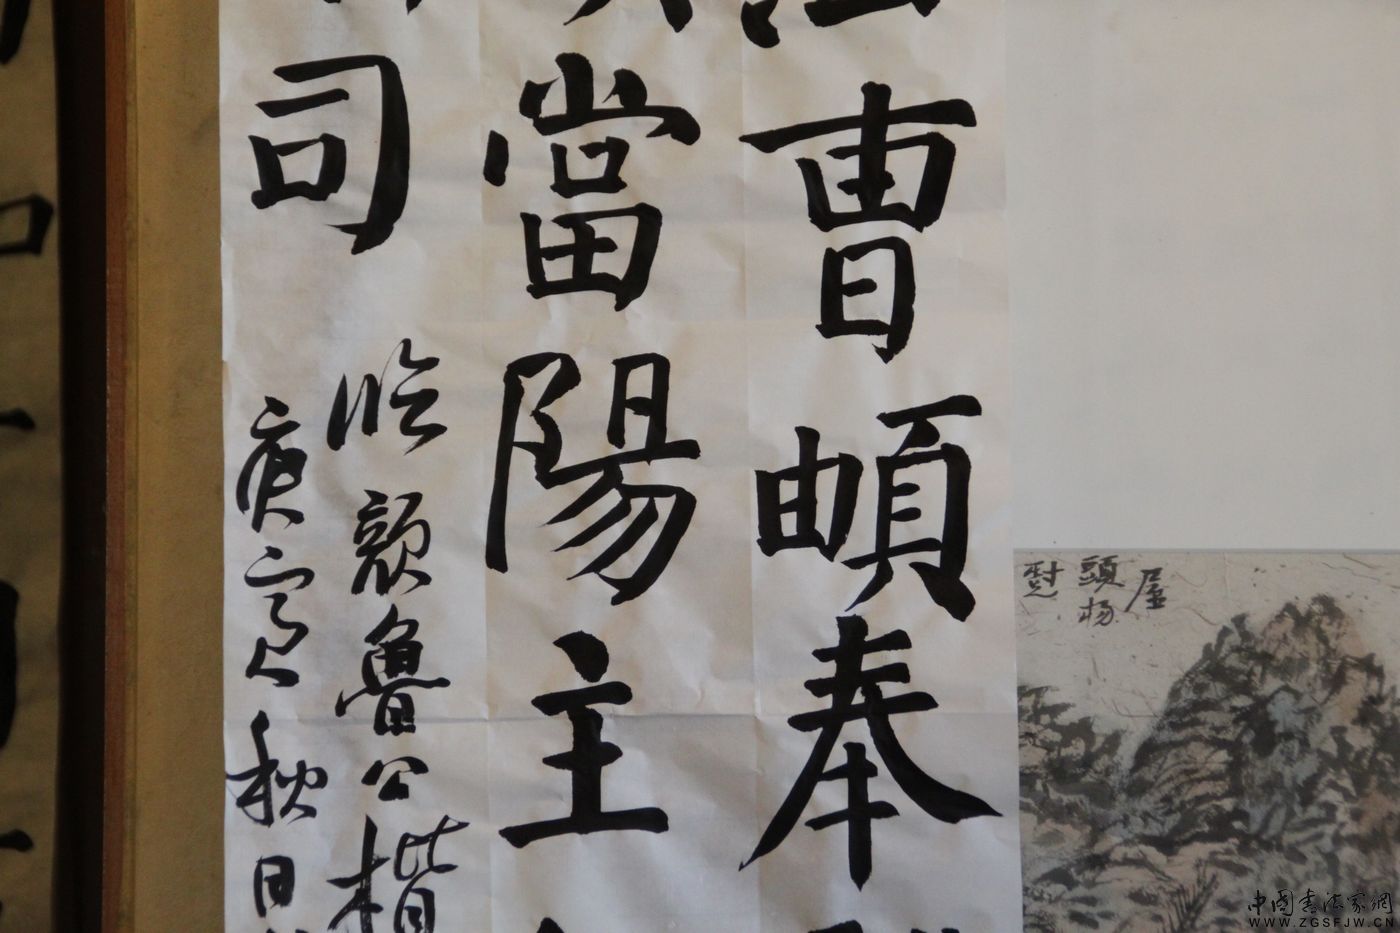 曹頔奉
當陽主
司
临顏魯公楷
庚寅秋日
頭杨
中国书法家網
WWW.ZGSFJW.CN